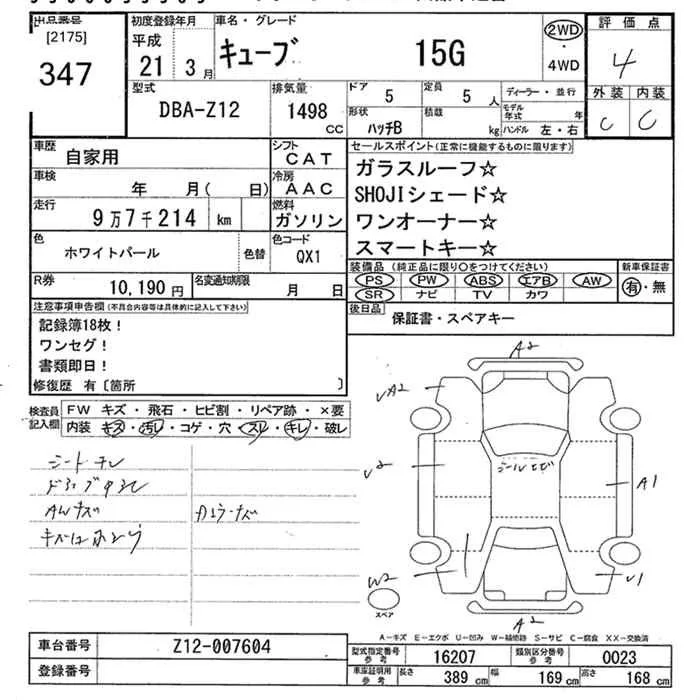 出品番号 初度登録年月 車名・グレード 評価点
[2175] 平成 キューブ 15G 2WD
347 21 3月 ・ 4WD 4
型式 排気量 ドア 定員 ディーラー・並行 外装 内装
DBA-Z12 1498 CC 5 5人 モデル年式 年 C C
形状 ハッチB 積載 kg ハンドル 左・右
車歴 自家用 シフト CAT セールスポイント(正常に機能するものに限ります)
車検 年 月( 日) 冷房 AAC ガラスルーフ☆
走行 9万7千214 km 燃料 ガソリン SHOJIシェード☆
ワンオーナー☆
スマートキー☆
色 ホワイトパール 色替 色コード QX1
装備品(純正品に限り○をつけてください) 新車保証書
PS PW ABS エアB AW 有・無
SR ナビ TV カワ
R券 10,190円 名変通知期限 月 日
後日品 保証書・スペアキー
注意事項申告欄(不具合内容等は具体的に記入して下さい)
記録簿18枚!
ワンセグ!
書類即日!
修復歴 有〔箇所 〕
検査員記入欄 FW キズ・飛石・ヒビ割・リペア跡・×要
内装 キズ・汚レ・コゲ・穴・スレ・キレ・破レ
シートスレ
AWキズ
A2
A2
A1
W2
A2
スペア
A-キズ E-エクボ U-凹み W-補修跡 S-サビ C-腐食 XX-交換済
車台番号 Z12-007604
登録番号
型式指定番号 参考 16207 類別区分番号 参考 0023
車庫証明用 参考 長さ 389 cm 幅 169 cm 高さ 168 cm